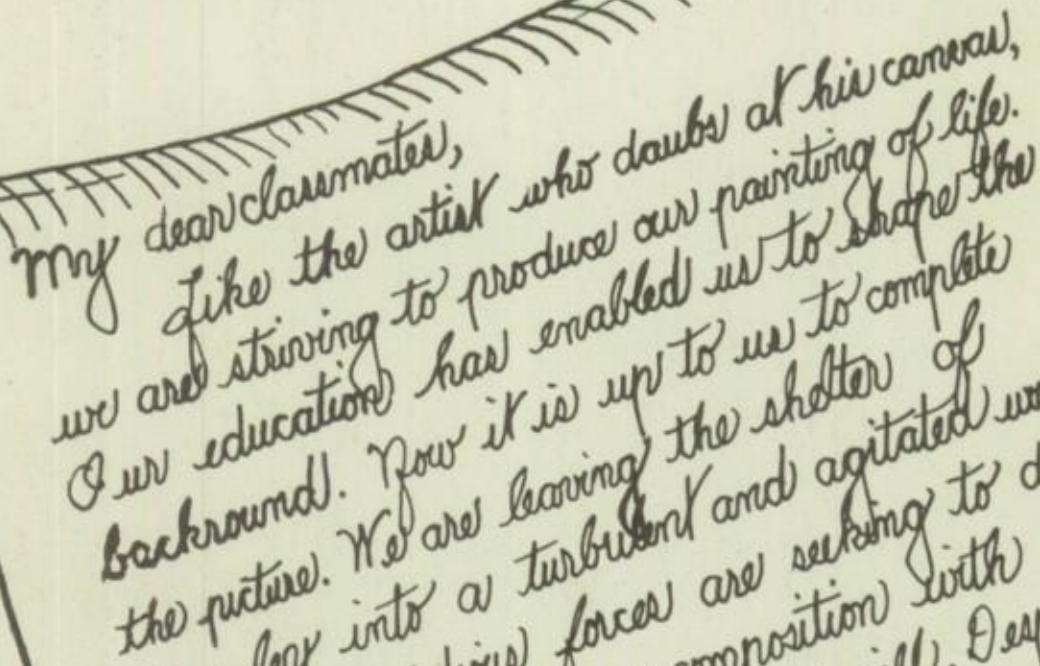 My dear classmates,
Like the artist who daubs at his canvas,
we are striving to produce our painting of life.
Our education has enabled us to shape the
backround. Now it is up to us to complete
the picture. We are leaving the shelter of
into a turbulent and agitated
forces are seeking to
with